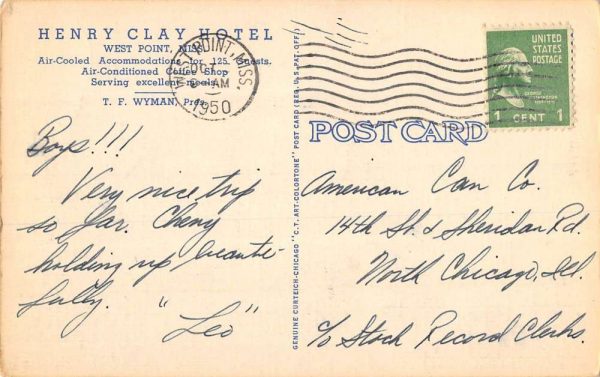 HENRY CLAY HOTEL
WEST POINT, MISS.
Air-Cooled Accommodations for 125 Guests.
Air-Conditioned Coffee Shop
Serving excellent meals.
T. F. WYMAN, Prop.
WEST POINT, MISS.
OCT
AM
1950
UNITED
STATES
POSTAGE
GEORGE
WASHINGTON
1 CENT 1
POST CARD
GENUINE CURTEICH-CHICAGO "C.T. ART-COLORTONE" POST CARD (REG. U.S. PAT. OFF.)
Boys!!!
Very nice trip
so far. Chevy
holding up beauti-
fully.
"Leo"
American Can Co.
14th St. & Sheridan Rd.
North Chicago, Ill.
c/o Stock Record Clerks.